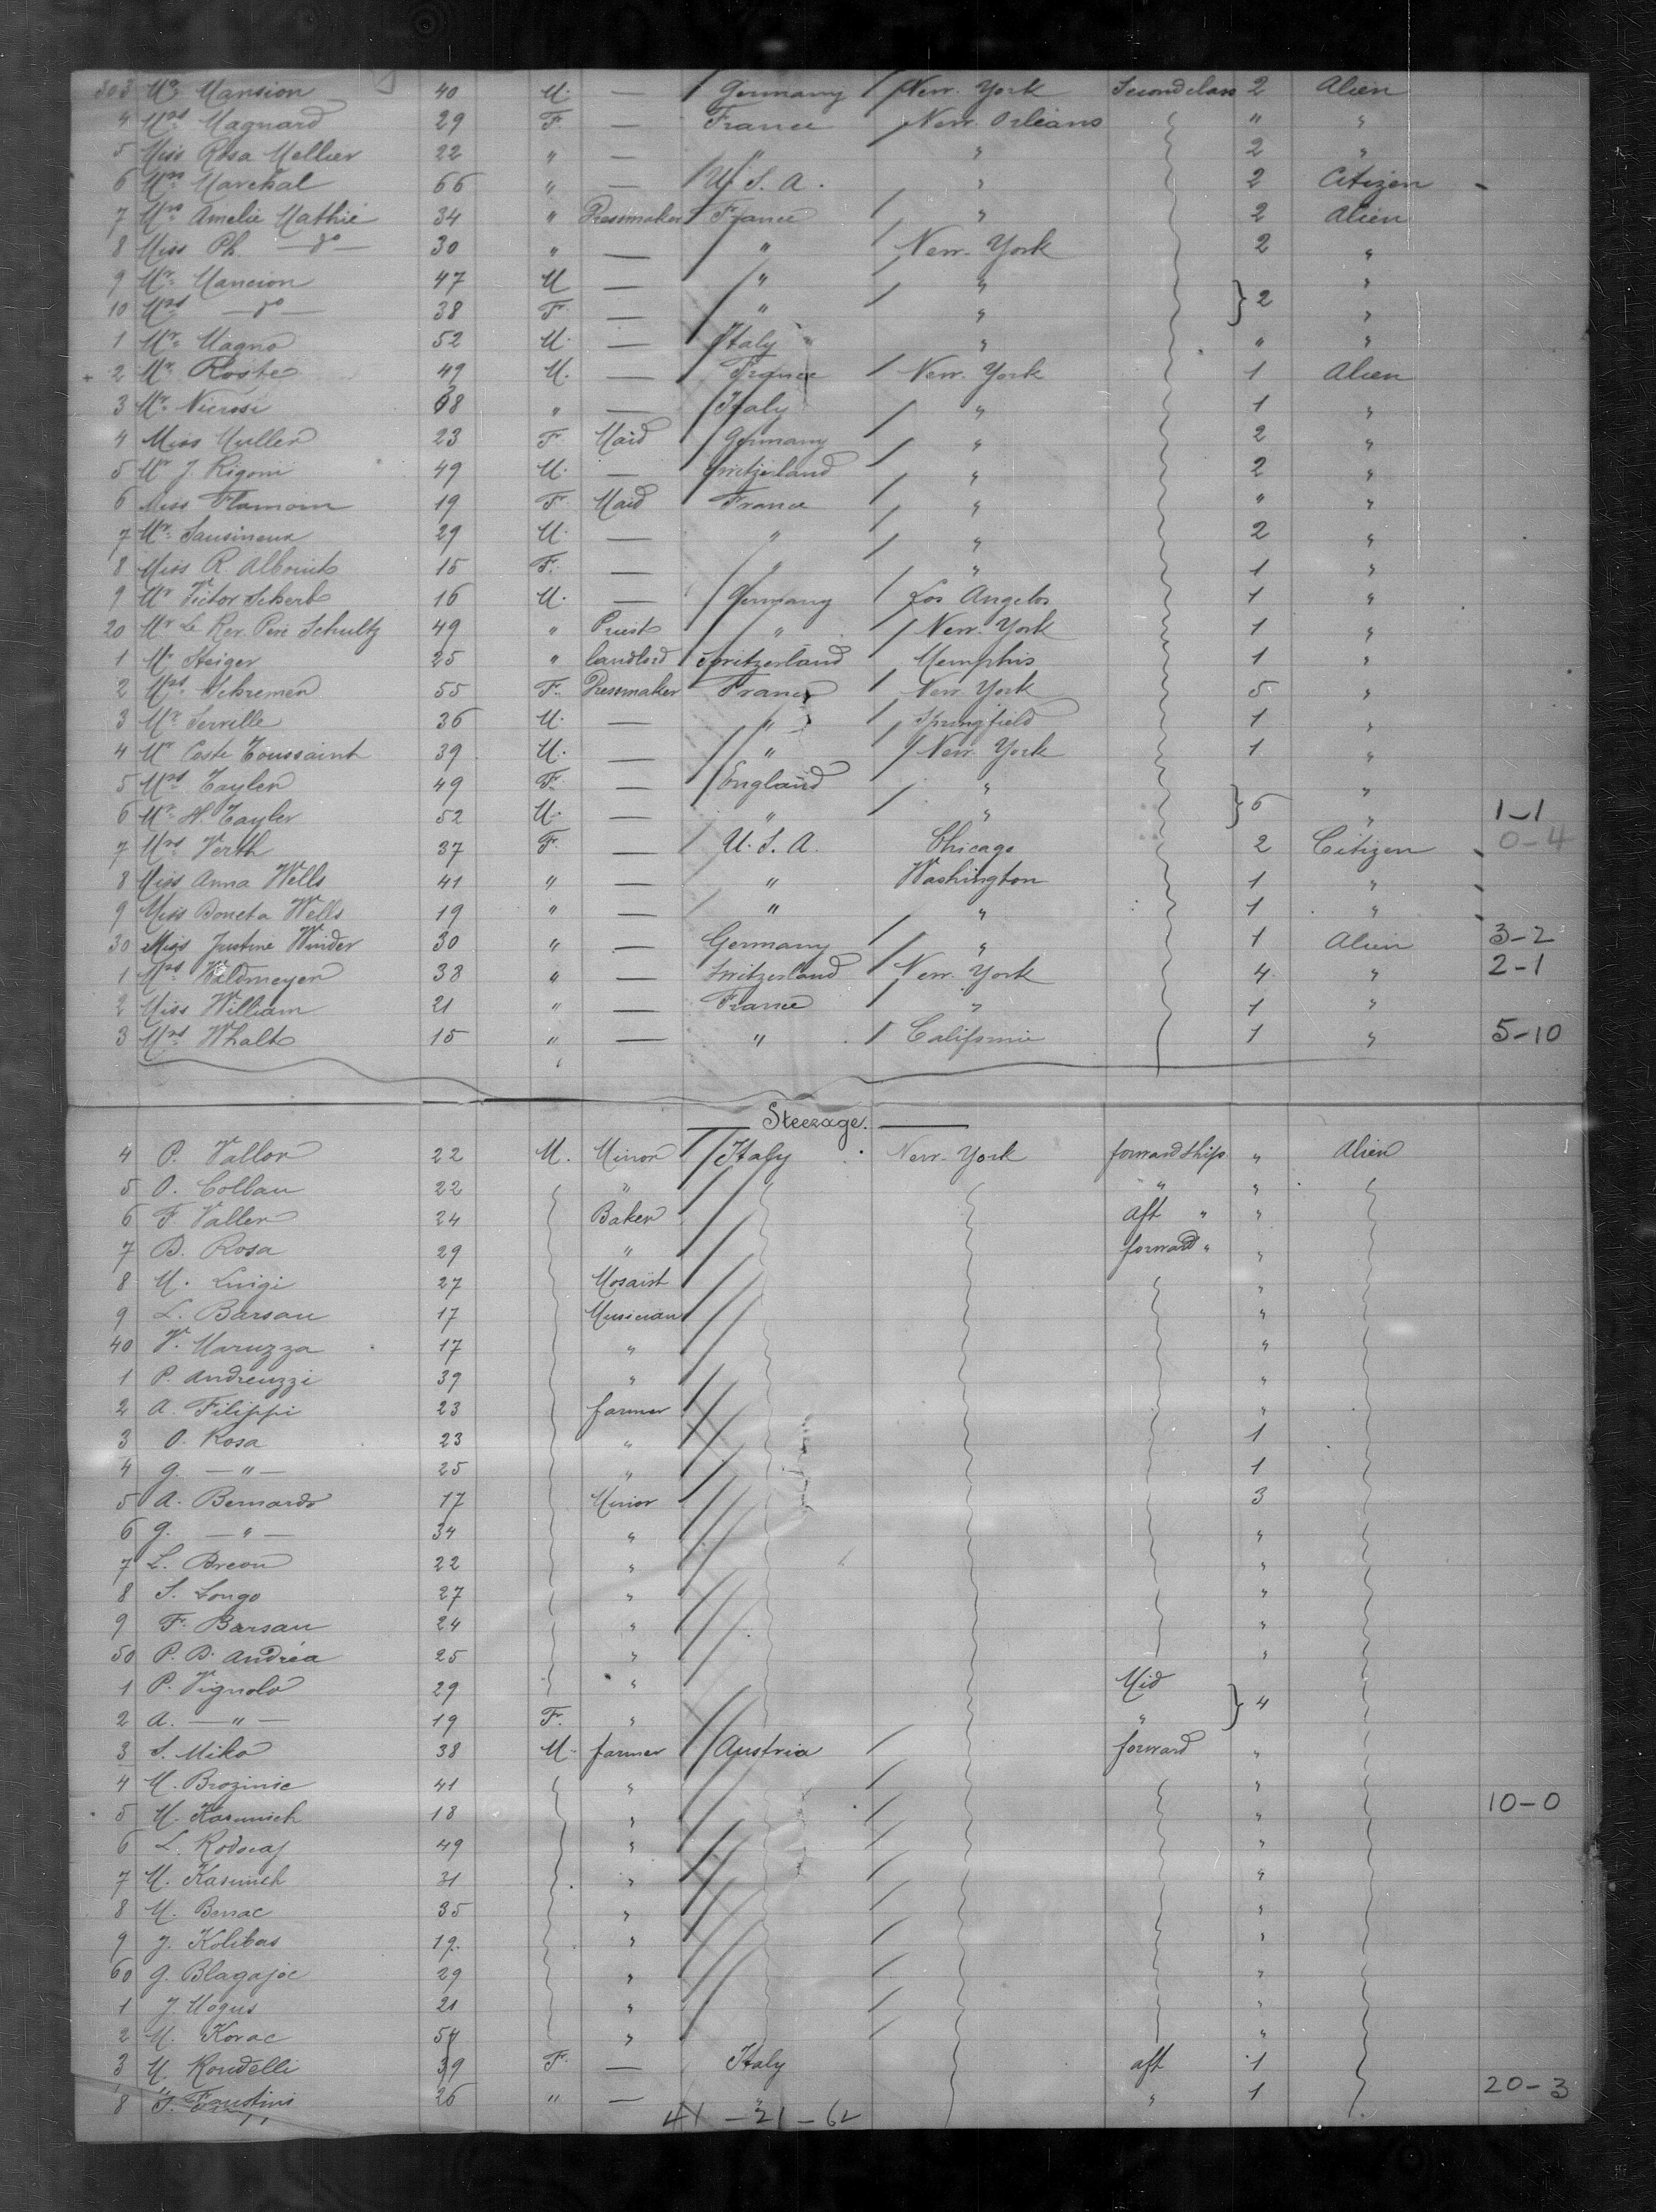 303 Mr Mansion 40 M. — Germany New-York Second class 2 Alien
4 Mrs Magnard 29 F — France New. Orleans " "
5 Miss Rosa Mellier 22 " — " " 2 "
6 Mrs Marchal 66 " — U. S. A. " 2 Citizen
7 Mrs Amelie Mathié 34 " Dressmaker France " 2 Alien
8 Miss Ph. — do — 30 " — " New-York 2 "
9 Mr Mancion 47 M — " " "
10 Mrs — do — 38 F — " " } 2 "
1 Mr Magno 52 M. — Italy " " "
+ 2 Mr Roste 49 M. — France New-York 1 Alien
3 Mr Nicrosi 68 " — Italy " 1 "
4 Miss Muller 23 F. Maid Germany " 2 "
5 Mr J. Rigoni 49 M. — Switzerland " 2 "
6 Miss Flamoin 19 F. Maid France " " "
7 Mr Sausineux 29 M. — " " 2 "
8 Miss R. 15 F. — " " 1 "
9 Mr Victor Scherb 16 M. — Germany Los Angelos 1 "
20 Mr Le Rev. Père Schultz 49 " Priest " New-York 1 "
1 Mr Steiger 25 " landlord Switzerland Memphis 1 "
2 Mrs Schremen 55 F. Dressmaker France New-York 5 "
3 Mr Serville 36 M. — " Springfield 1 "
4 Mr Coste Toussaint 39 M. — " New-York 1 "
5 Mrs Tayler 49 F. — England " "
6 Mr H. Tayler 52 M. — " " } 6 " 1-1
7 Mrs Verth 37 F. — U. S. A. Chicago 2 Citizen 0-4
8 Miss Anna Wells 41 " — " Washington 1 "
9 Miss Boneta Wells 19 " — " " 1 "
30 Miss Justine Winder 30 " — Germany " 1 Alien 3-2
1 Mrs Waldmeyer 38 " — Switzerland New-York 4 " 2-1
2 Miss William 21 " — France " 1 "
3 Mrs Whalt 15 " — " Californie 1 " 5-10
Steerage.
4 P. Vallor 22 M. Minor Italy New-York forward ship " Alien
5 O. Collau 22 " " "
6 F. Valler 24 Baker aft " "
7 D. Rosa 29 " forward " "
8 M. Luigi 27 Mosaist "
9 L. Barsau 17 Musician "
40 V. Maruzza 17 " "
1 P. Andreuzzi 39 " "
2 A. Filippi 23 farmer "
3 O. Rosa 23 " 1
4 g. — " — 25 " 1
5 A. Bernardo 17 Minor 3
6 g. — " — 34 " "
7 L. Breon 22 " "
8 S. Longo 27 " "
9 F. Barsau 24 " "
50 P. D. Andréa 25 " "
1 P. Vignolo 29 " Mid
2 A. — " — 19 F. " " } 4
3 S. Miko 38 M. farmer Austria forward "
4 M. Brozinic 41 " "
5 M. Kasunich 18 " " 10-0
6 L. Rodocaj 49 " "
7 M. Kasunich 31 " "
8 M. Benac 35 " "
9 J. Kolibas 19. " "
60 g. Blagajoc 29 " "
1 J. Mogus 21 " "
2 M. Kovac 54 " "
3 M. Rondelli 39 F. — Italy aft 1
8 S. Faustini 26 " — " " 1 20-3
41-21-62